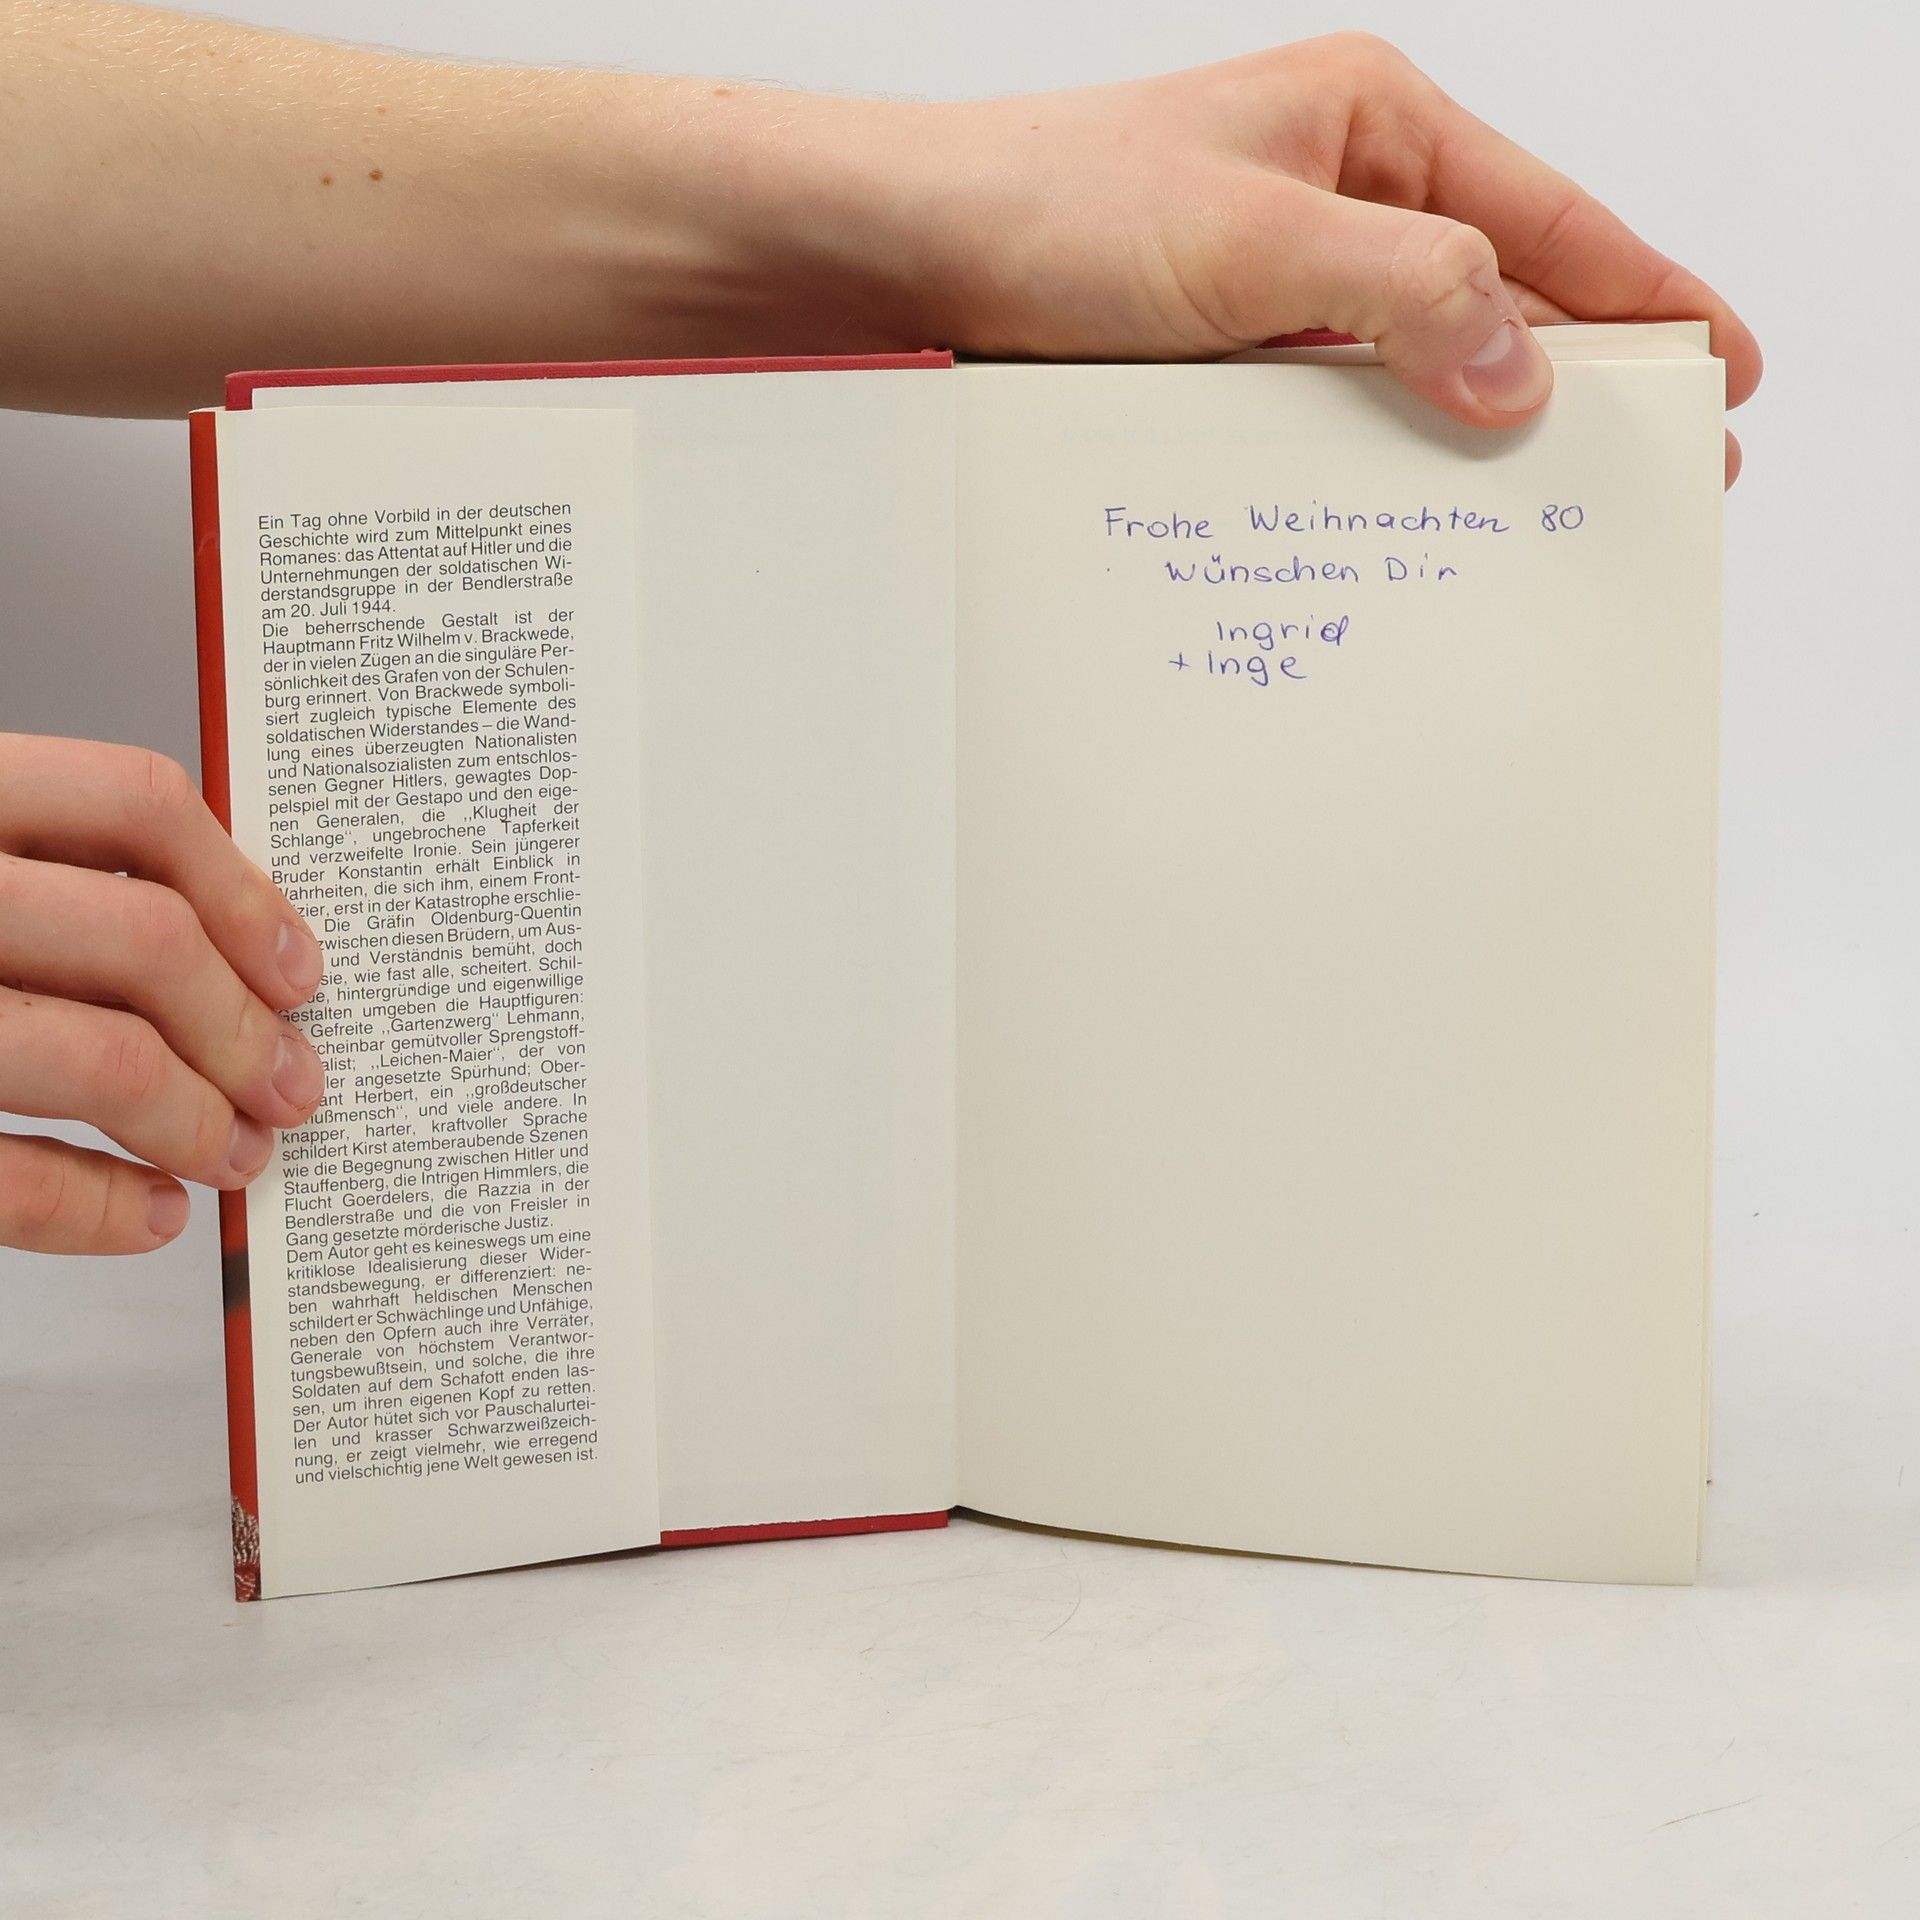 Ein Tag ohne Vorbild in der deutschen
Geschichte wird zum Mittelpunkt eines
Romanes: das Attentat auf Hitler und die
Unternehmungen der soldatischen Wi-
derstandsgruppe in der Bendlerstraße
am 20. Juli 1944.
Die beherrschende Gestalt ist der
Hauptmann Fritz Wilhelm v. Brackwede,
der in vielen Zügen an die singuläre Per-
sönlichkeit des Grafen von der Schulen-
burg erinnert. Von Brackwede symboli-
siert zugleich typische Elemente des
soldatischen Widerstandes – die Wand-
lung eines überzeugten Nationalisten
und Nationalsozialisten zum entschlos-
senen Gegner Hitlers, gewagtes Dop-
pelspiel mit der Gestapo und den eige-
nen Generalen, die „Klugheit der
Schlange“, ungebrochene Tapferkeit
und verzweifelte Ironie. Sein jüngerer
Bruder Konstantin erhält Einblick in
Wahrheiten, die sich ihm, einem Front-
zier, erst in der Katastrophe erschlie-
Die Gräfin Oldenburg-Quentin
zwischen diesen Brüdern, um Aus-
und Verständnis bemüht, doch
sie, wie fast alle, scheitert. Schil-
de, hintergründige und eigenwillige
Gestalten umgeben die Hauptfiguren:
Gefreite „Gartenzwerg“ Lehmann,
scheinbar gemütvoller Sprengstoff-
alist; „Leichen-Maier“, der von
ler angesetzte Spürhund; Ober-
ant Herbert, ein „großdeutscher
nußmensch“, und viele andere. In
knapper, harter, kraftvoller Sprache
schildert Kirst atemberaubende Szenen
wie die Begegnung zwischen Hitler und
Stauffenberg, die Intrigen Himmlers, die
Flucht Goerdelers, die Razzia in der
Bendlerstraße und die von Freisler in
Gang gesetzte mörderische Justiz.
Dem Autor geht es keineswegs um eine
kritiklose Idealisierung dieser Wider-
standsbewegung, er differenziert: ne-
ben wahrhaft heldischen Menschen
schildert er Schwächlinge und Unfähige,
neben den Opfern auch ihre Verräter,
Generale von höchstem Verantwor-
tungsbewußtsein, und solche, die ihre
Soldaten auf dem Schafott enden las-
sen, um ihren eigenen Kopf zu retten.
Der Autor hütet sich vor Pauschalurtei-
len und krasser Schwarzweißzeich-
nung, er zeigt vielmehr, wie erregend
und vielschichtig jene Welt gewesen ist.
Frohe Weihnachten 80
wünschen Dir
Ingrid
+ Inge